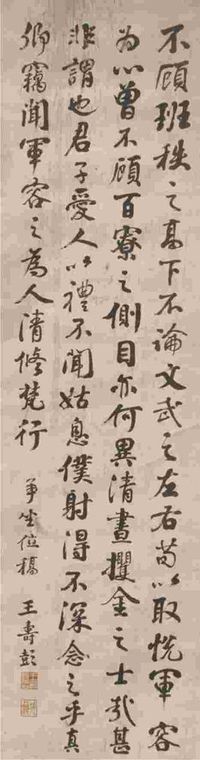 不顧班秩之高下不論文武之左右苟以取悅軍容
為心曾不顧百寮之側目亦何異清晝攫金之士哉甚
非謂也君子愛人以禮不聞姑息僕射得不深念之乎真
卿竊聞軍容之為人清修梵行
爭坐位稿
王壽彭